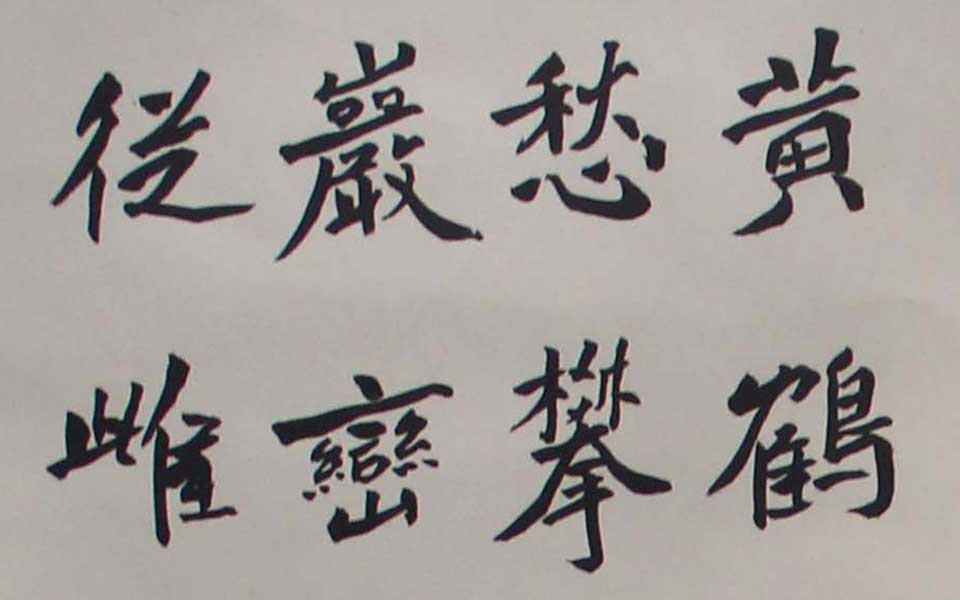 黄鶴
愁攀
巖巒
從雌